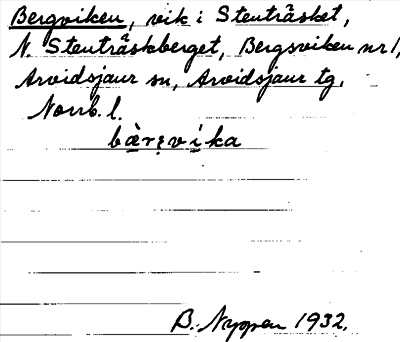 Bergviken, vik i Stenträsket,
N. Stenträskberget, Bergsviken nr 1,
Arvidsjaur sn, Arvidsjaur tg.
Norrb. l.
bærvika
B. Nyppen 1932.